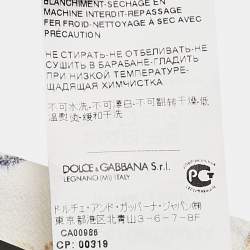 BLANCHIMENT-SÉCHAGE EN
MACHINE INTERDIT-REPASSAGE
FER FROID-NETTOYAGE A SEC AVEC
PRÉCAUTION
НЕ СТИРАТЬ-НЕ ОТБЕЛИВАТЬ-НЕ
СУШИТЬ В БАРАБАНЕ-ГЛАДИТЬ
ПРИ НИЗКОЙ ТЕМПЕРАТУРЕ-
ЩАДЯЩАЯ ХИМЧИСТКА
不可水洗-不可漂白-不可翻转干燥-低
温熨烫-缓和干洗
DOLCE & GABBANA S.r.l.
LEGNANO (MI) ITALY
PG
ドルチェ・アンド・ガッバーナ・ジャパン(株)
東京都港区北青山3-6-7-8F
CA00986
CP: 00319